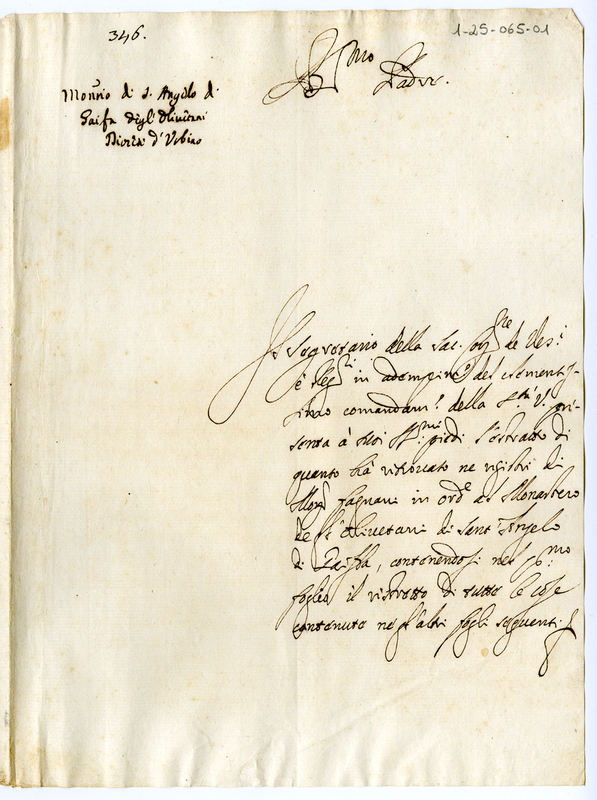 346.
1-25-065-01
B.mo Padre.
Mon.rio di S. Angelo di
Gaifa degl' Olivetani
Diocesi d' Urbino
Il Segretario della Sac. Cong.ne de Ves.i
e Reg.ri in adempim.to del clementis-
simo comandam.o della S.tà V. pre-
senta à suoi SS.mi piedi l'estratto di
quanto hà ritrovato ne registri di
Mons. Fagnani in ord.e al Monastero
de PP. Olivetani di Sant' Angelo
di Gaiffa, contenendosi nel p.mo
foglio il ristretto di tutte le cose
contenute negl'altri fogli seguenti